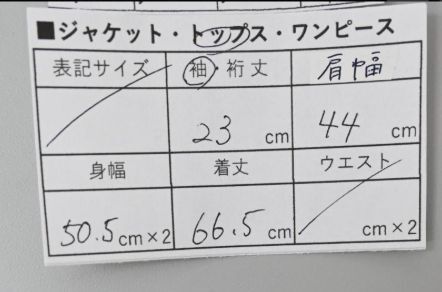 ■ジャケット・トップス・ワンピース
表記サイズ 袖・裄丈 肩幅
23 cm 44 cm
身幅 着丈 ウエスト
50.5 cm×2 66.5 cm cm×2